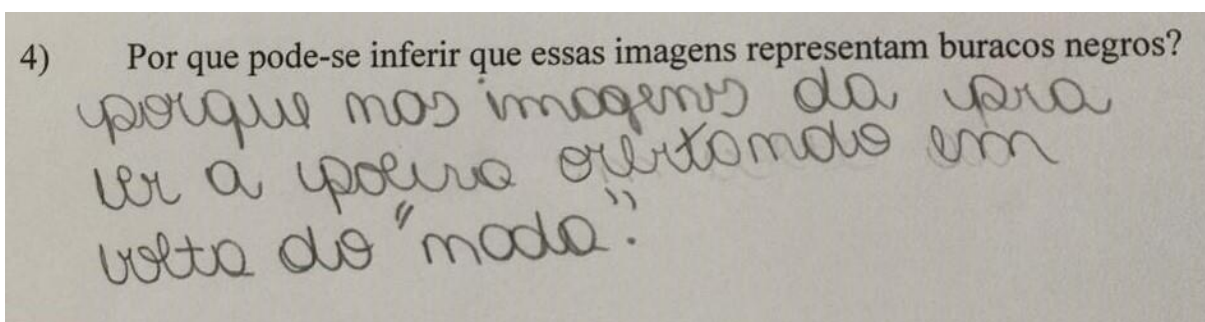 4) Por que pode-se inferir que essas imagens representam buracos negros?
porque nas imagens da pra
ver a poeira orbitando em
volta do "nada".